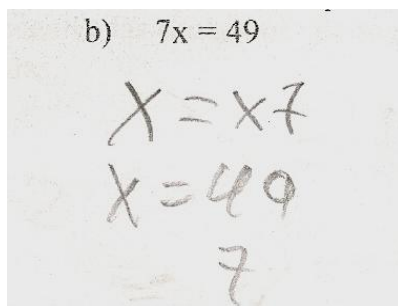 b) 7x = 49
X = x7
X = 49
7